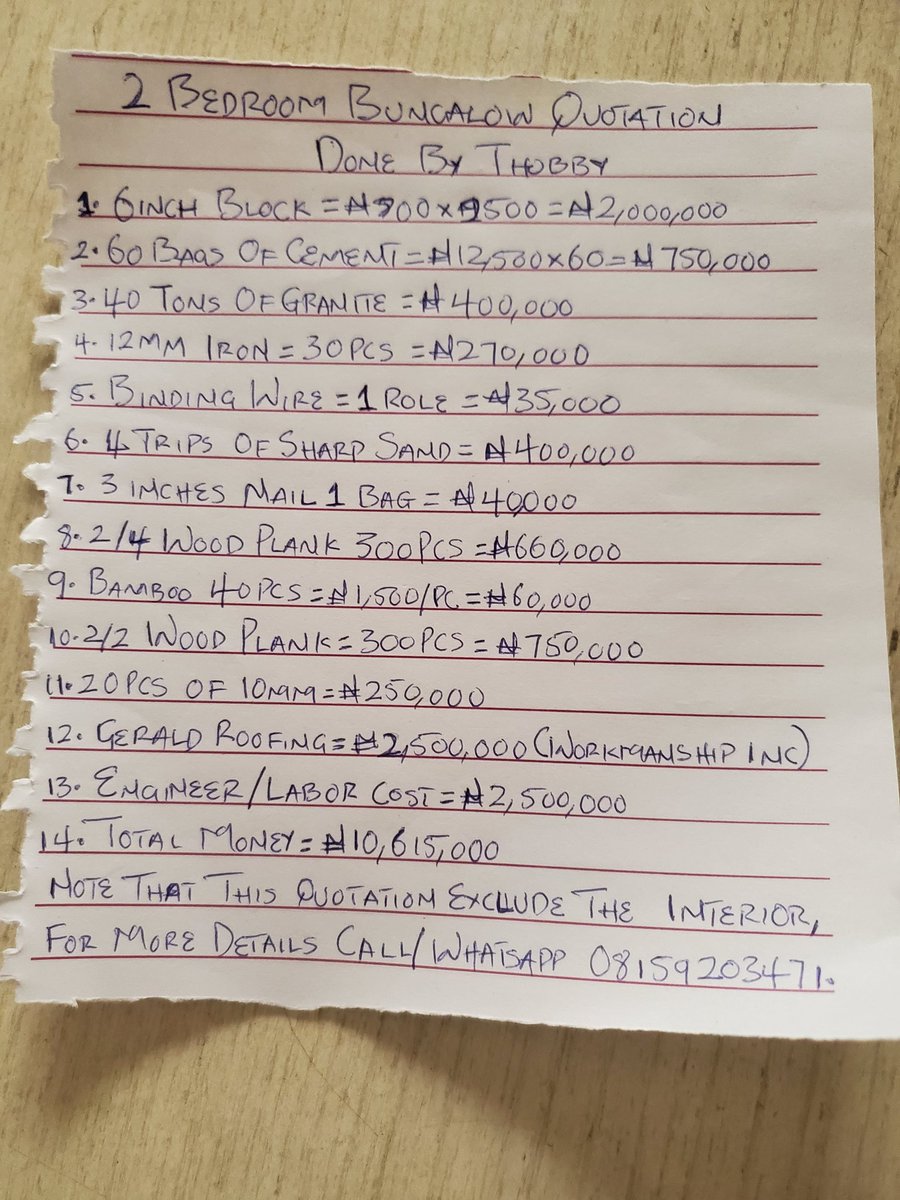 2 BEDROOM BUNGALOW QUOTATION
DONE BY THOBBY
1. 6INCH BLOCK = ₦ x = ₦2,000,000
2. 60 BAGS OF CEMENT = ₦12,500x60 = ₦750,000
3. 40 TONS OF GRANITE = ₦400,000
4. 12MM IRON = 30PCS = ₦270,000
5. BINDING WIRE = 1 ROLE = ₦35,000
6. 4 TRIPS OF SHARP SAND = ₦400,000
7. 3 INCHES NAIL 1 BAG = ₦40,000
8. 2/4 WOOD PLANK 300PCS = ₦660,000
9. BAMBOO 40PCS = ₦1,500/PC = ₦60,000
10. 2/2 WOOD PLANK = 300PCS = ₦750,000
11. 20PCS OF 10MM = ₦250,000
12. GERALD ROOFING = ₦2,500,000 (WORKMANSHIP INC)
13. ENGINEER/LABOR COST = ₦2,500,000
14. TOTAL MONEY = ₦10,615,000
NOTE THAT THIS QUOTATION EXCLUDE THE INTERIOR,
FOR MORE DETAILS CALL/WHATSAPP 08159203471.